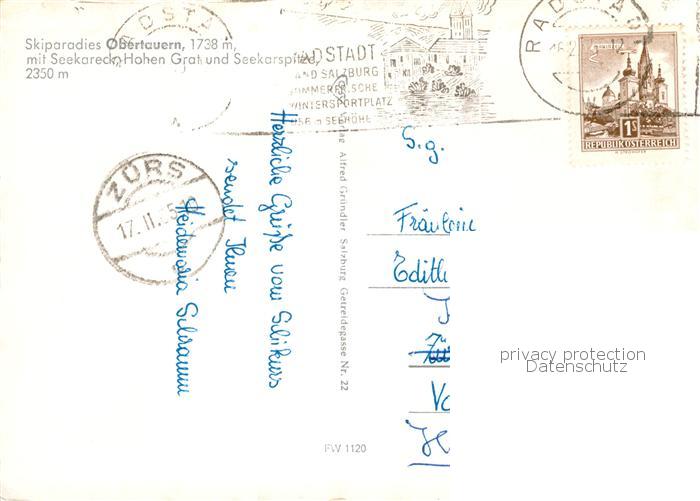 Skiparadies Obertauern, 1738 m,
mit Seekareck, Hohen Grat und Seekarspitze,
2350 m
RADSTADT
LAND SALZBURG
SOMMERFRISCHE
WINTERSPORTPLATZ
856 m SEEHÖHE
RADSTADT
1S
REPUBLIK ÖSTERREICH
ZÜRS
17. II.
Herzliche Grüße vom Schikurs
sendet Ihnen
Heidemaria Schramm
Verlag Alfred Gründler Salzburg Getreidegasse Nr. 22
S.g.
Fräulein
Edith
privacy protection
Datenschutz
FW 1120